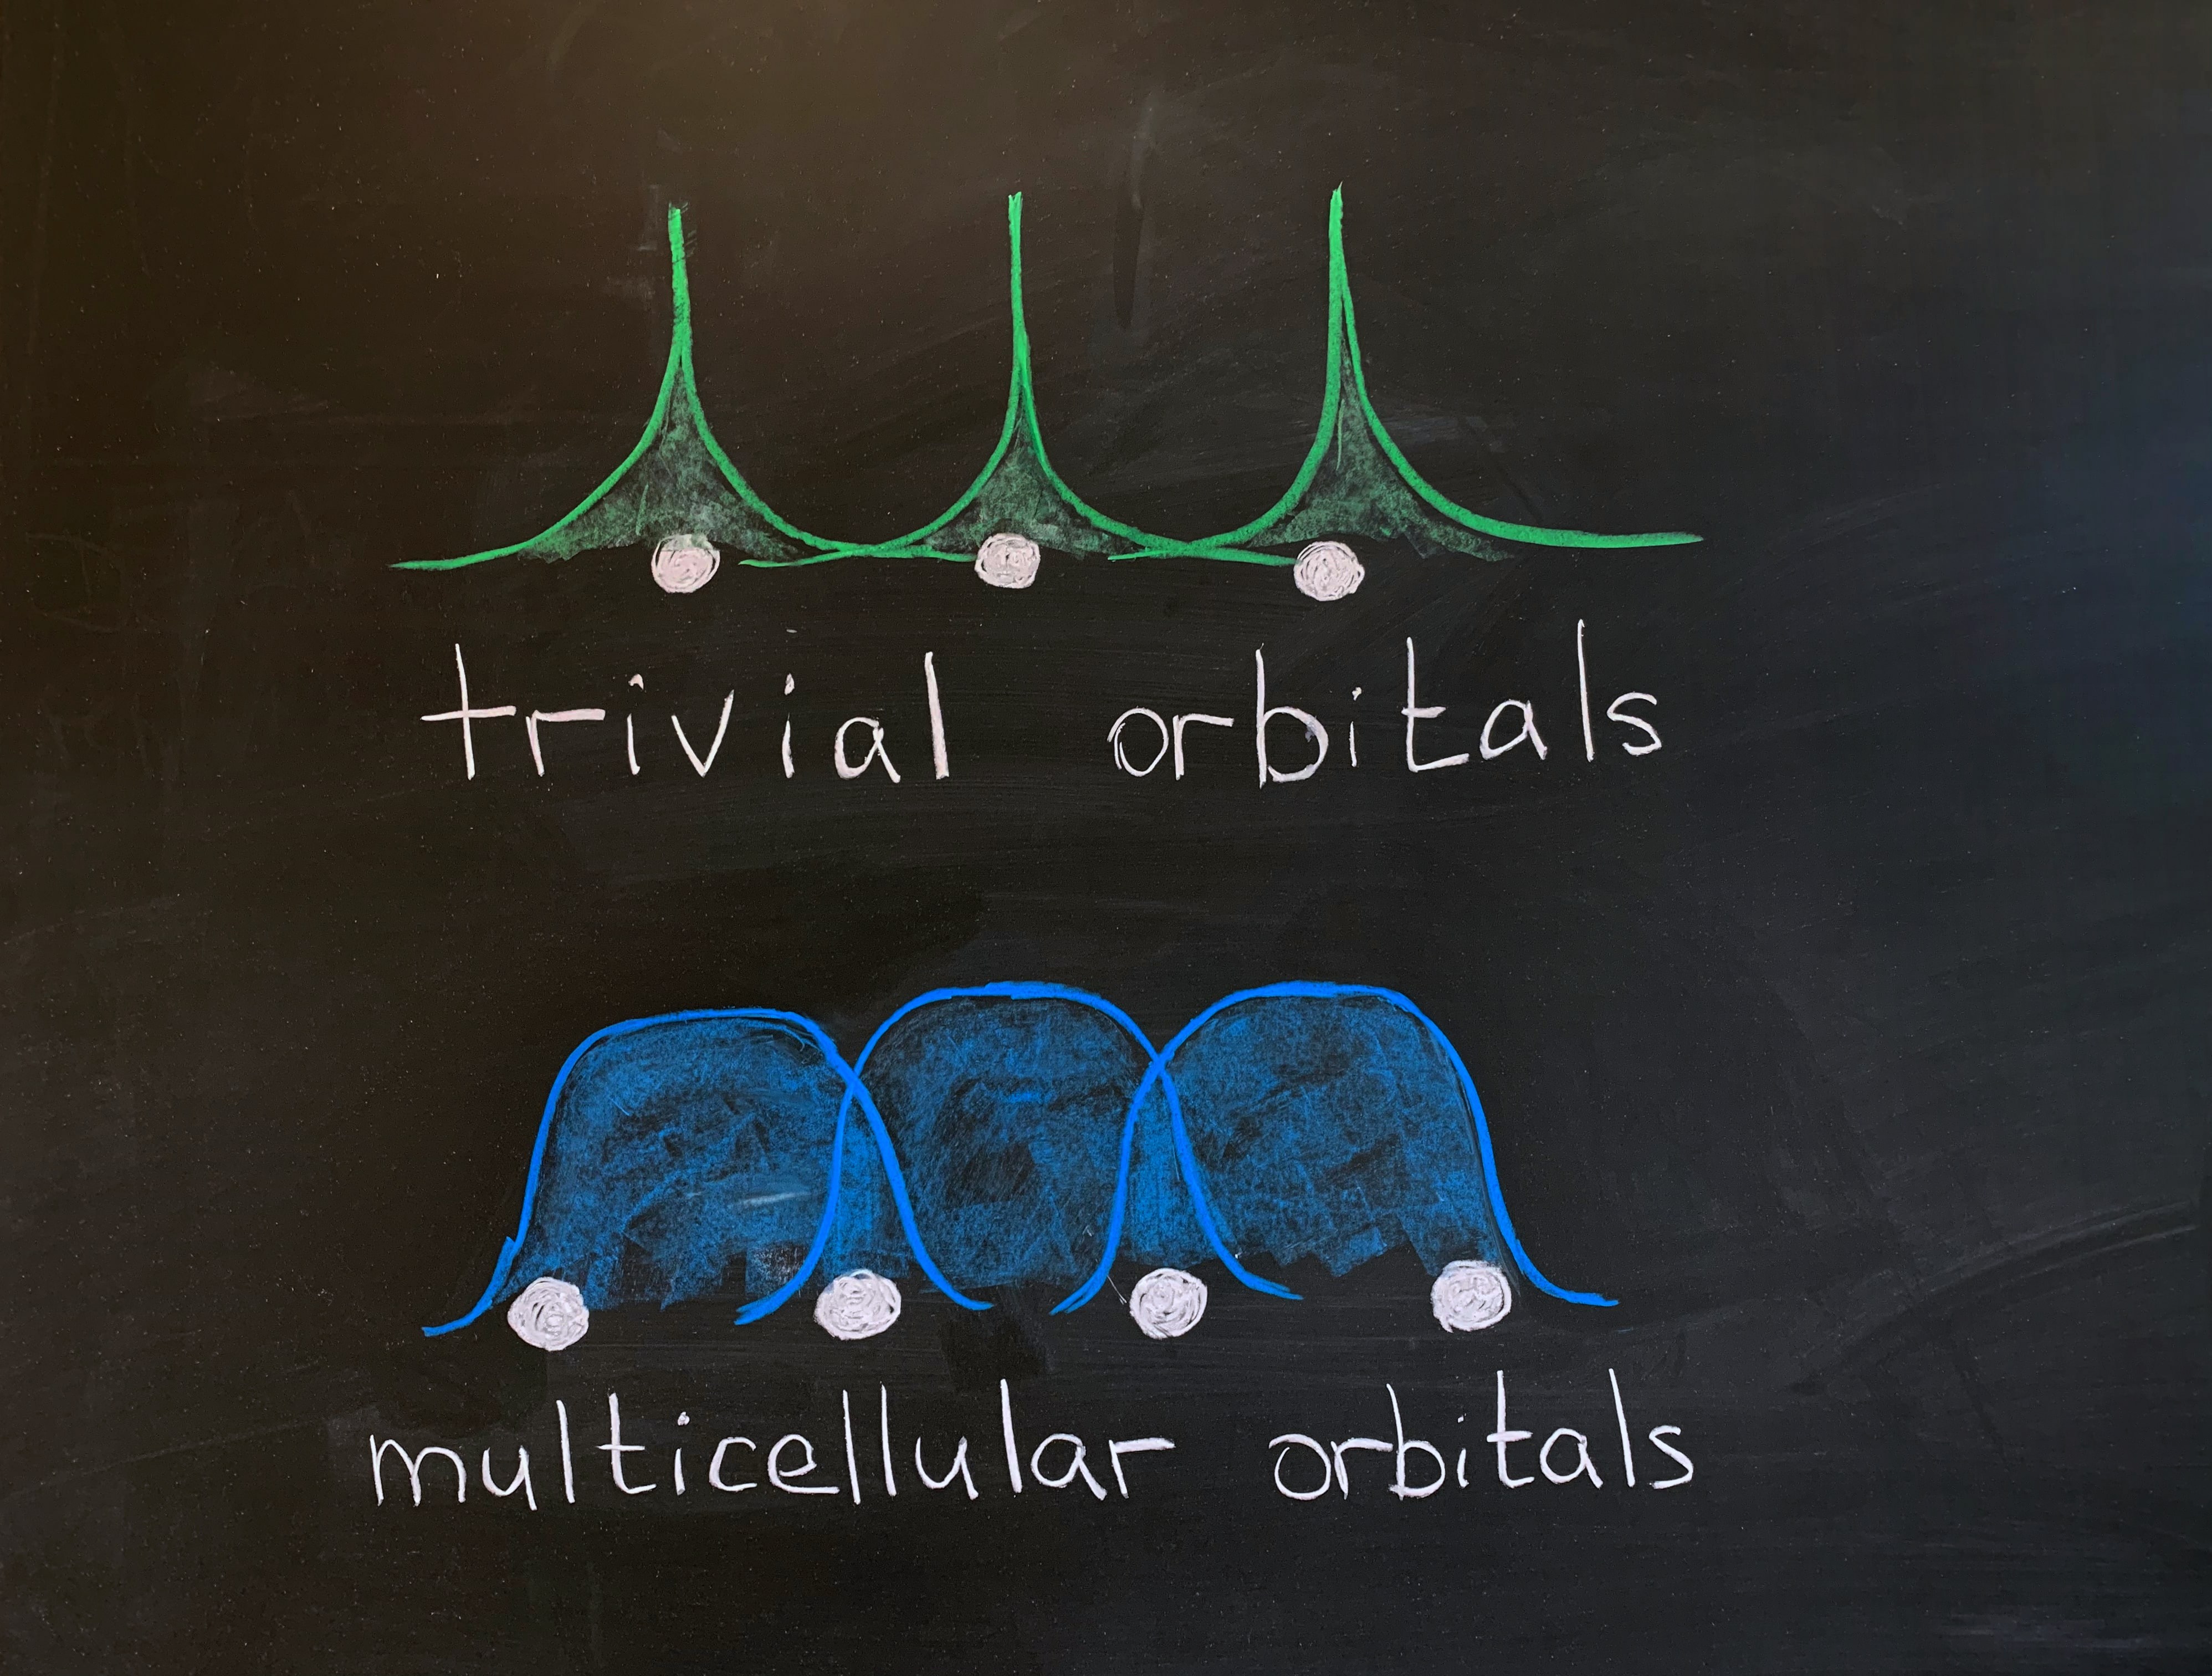 trivial orbitals
multicellular orbitals